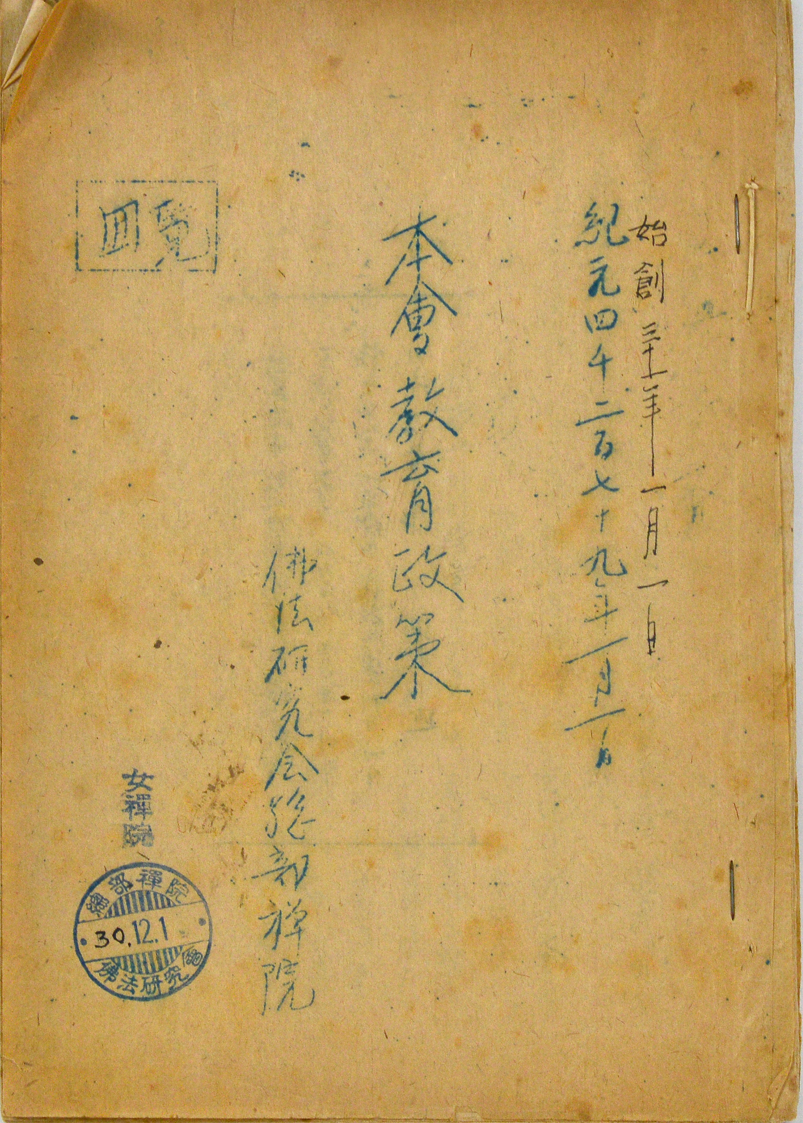 始創三十一年一月一日
紀元四千二百七十九年一月一日
本會教育政策
佛法研究会総部禅院
回覽
女禪院
總部禪院
30.12.1
佛法研究會